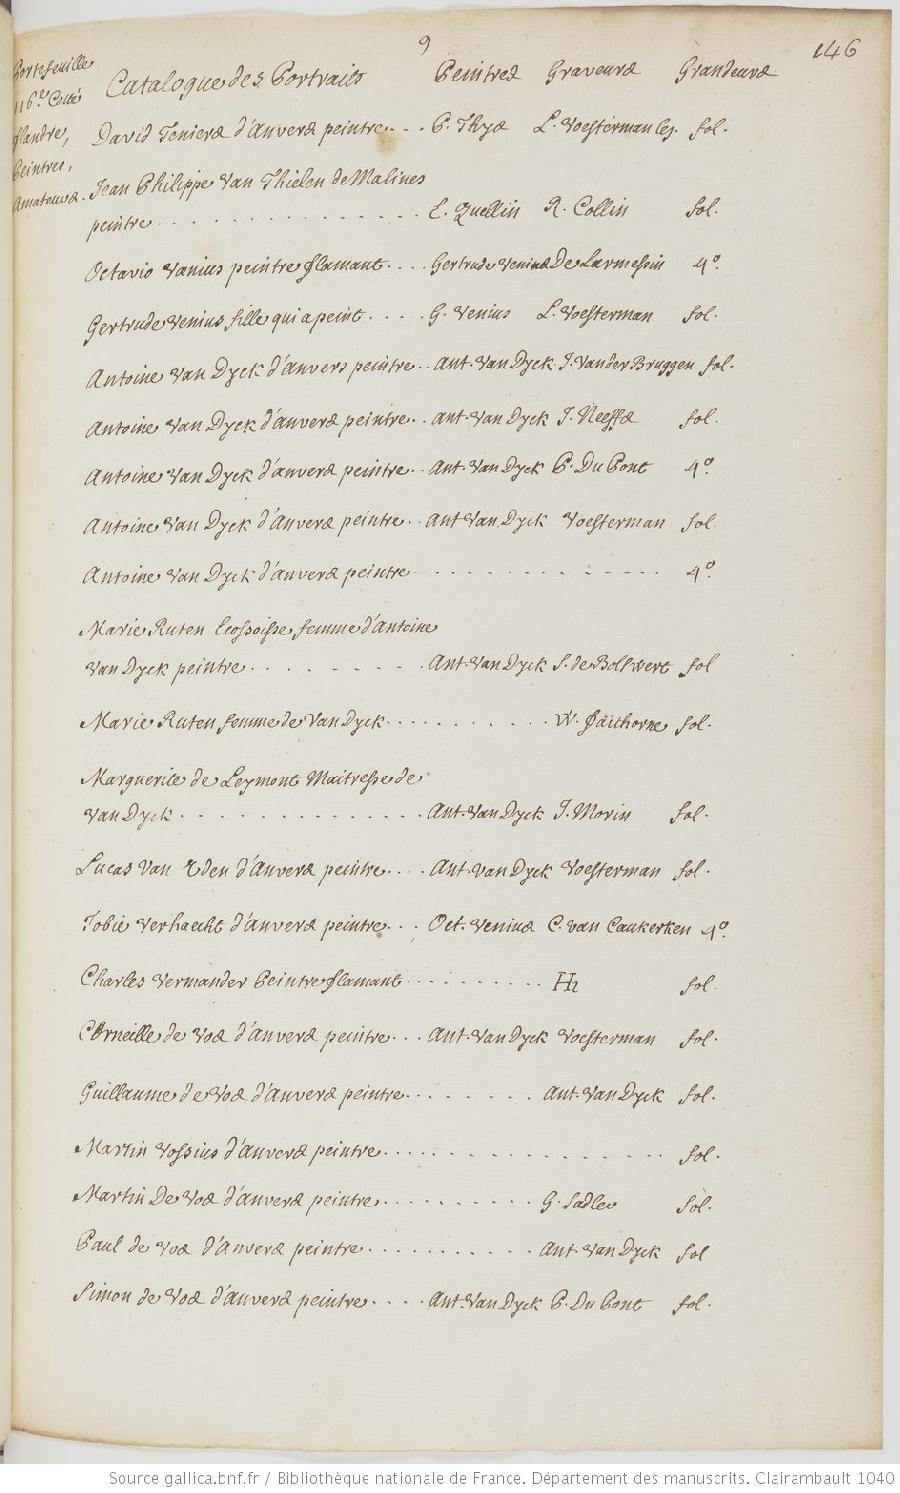 9
146
Portefeuille
116.e Cotté
flandre,
Peintres,
Amateurs.
Catalogue des Portraits Peintres Graveurs Grandeurs
David Teniers d'Anvers peintre . . . P. Thys L. Voesterman les. fol.
Jean Philippe Van Thielen de Malines
peintre . . . . . . . . . . . . . E. Quellin R. Collin fol.
Octavio Vanius peintre flamant . . . . Gertrude Venius De Larmessin 4º.
Gertrude Venius fille qui a peint . . . . G. Venius L. Voesterman fol.
Antoine Van Dyck d'Anvers peintre . . Ant. Van Dyck J. Vander Bruggen fol.
Antoine Van Dyck d'anvers peintre . . ant. Van Dyck J. Neeffs fol.
Antoine Van Dyck d'anvers peintre . . Ant. Van Dyck P. Du Pont 4º.
Antoine Van Dyck d'Anvers peintre . . Ant Van Dyck Voesterman fol.
Antoine Van Dyck d'anvers peintre . . . . . . . . . . . . . . 4º.
Marie Ruten Ecossoisse femme d'Antoine
Van Dyck peintre . . . . . . . . . Ant. Van Dyck S. de Bollwert fol
Marie Ruten femme de Van Dyck . . . . . . . . . . . W. Faithorne fol.
Marguerite de Leymont Maitresse de
Van Dyck . . . . . . . . . . . . . Ant. Van Dyck J. Morin fol.
Lucas Van Uden d'Anvers peintre . . . . Ant. Van Dyck Voesterman fol.
Tobie Verhaecht d'anvers peintre . . . Oct. Venius C. van Caukerken 4º.
Charles Vermander Peintre flamant . . . . . . . . . . HH fol.
Corneille de Vos d'Anvers peintre . . . Ant. Van Dyck Voesterman fol.
Guillaume de Vos d'Anvers peintre . . . . . . . . . Ant. Van Dyck fol.
Martin Vossius d'Anvers peintre . . . . . . . . . . . . . . . . . fol.
Martin De Vos d'Anvers peintre . . . . . . . . . . G. Sadler fol.
Paul de Vos d'Anvers peintre . . . . . . . . . . . Ant. Van Dyck fol
Simon de Vos d'anvers peintre . . . . Ant. Van Dyck P. Du Pont fol.
Source gallica.bnf.fr / Bibliothèque nationale de France. Département des manuscrits. Clairambault 1040